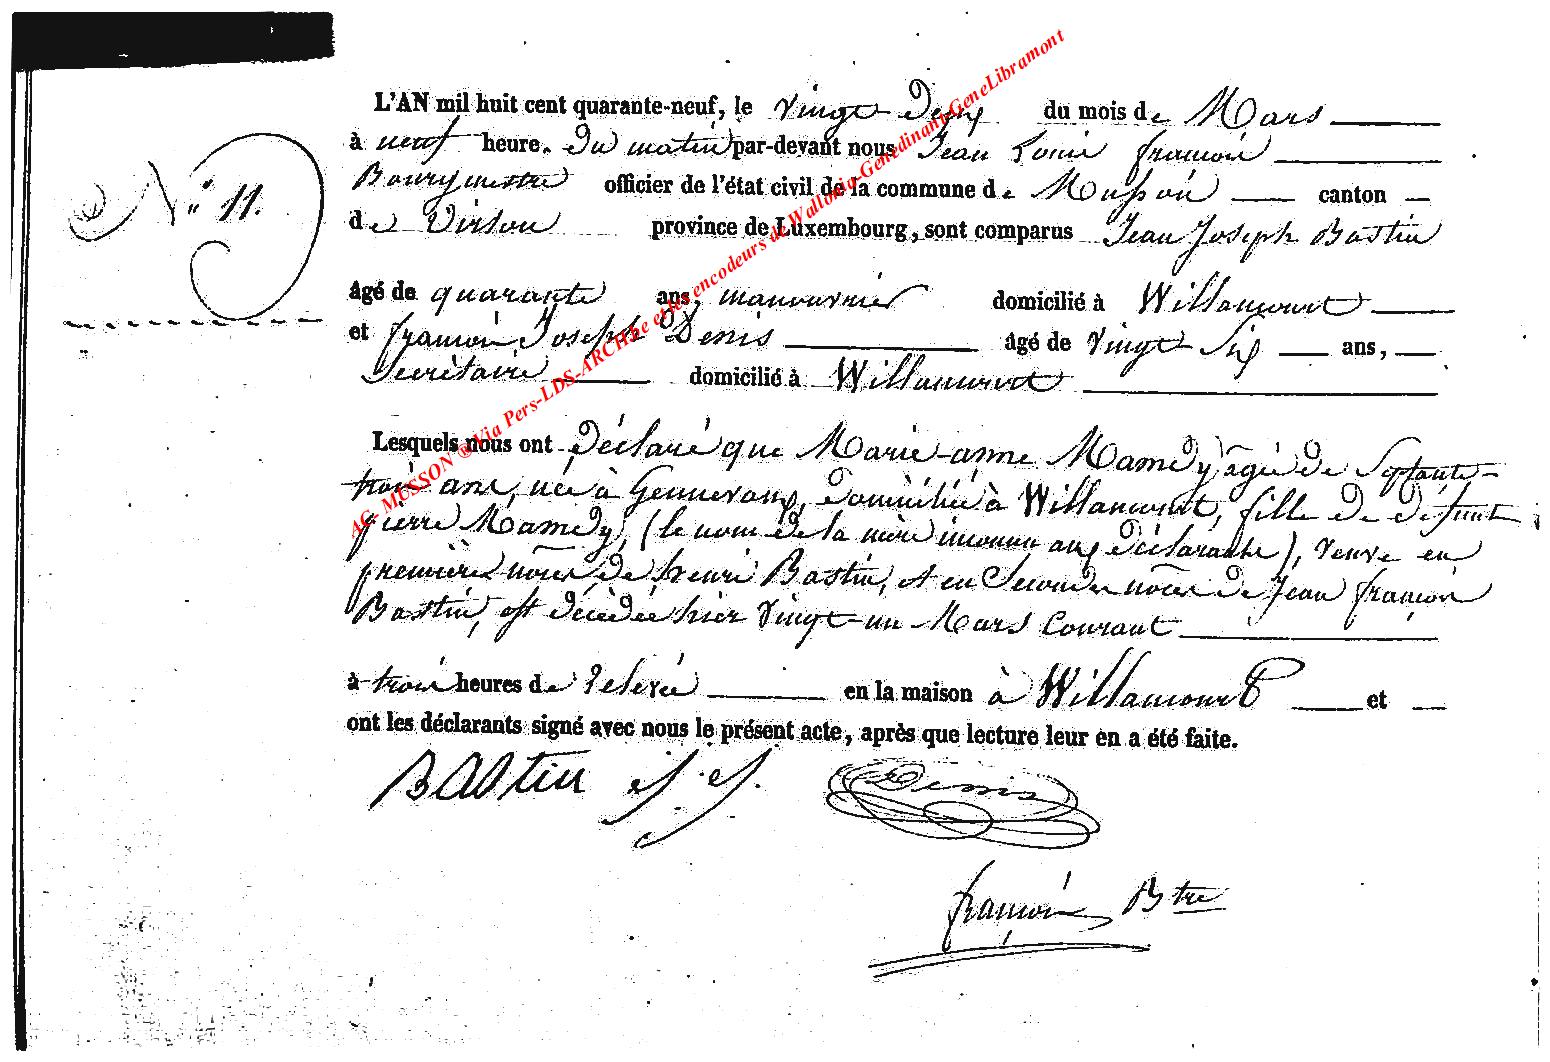 L'AN mil huit cent quarante-neuf, le vingt deux du mois de Mars
à neuf heure. du matin par-devant nous Jean Louis françois
Bourgmestre officier de l'état civil de la commune de Musson canton
N° 11.
de Virton province de Luxembourg, sont comparus Jean Joseph Bastin
âgé de quarante ans, manouvrier domicilié à Willancourt
et françois Joseph Denis âgé de vingt Six ans,
Secrétaire domicilié à Willancourt
Lesquels nous ont déclaré que Marie-anne Mamdy âgée de Septante-
trois ans, née à Gennevaux, domiciliée à Willancourt, fille de défunt
pierre Mamdy, (le nom de la mère inconnu aux déclarants), veuve en
premières nôces de henri Bastin, et en Secondes nôces de Jean françois
Bastin, est décédée hier vingt-un Mars Courant
à trois heures de relevée en la maison à Willancourt et
ont les déclarants signé avec nous le présent acte, après que lecture leur en a été faite.
BAStin J. J. Denis
françois Btre
AC- MUSSON ® Via Pers-LDS-ARCHbe et les encodeurs de Wallonia-Genedinant-GeneLibramont